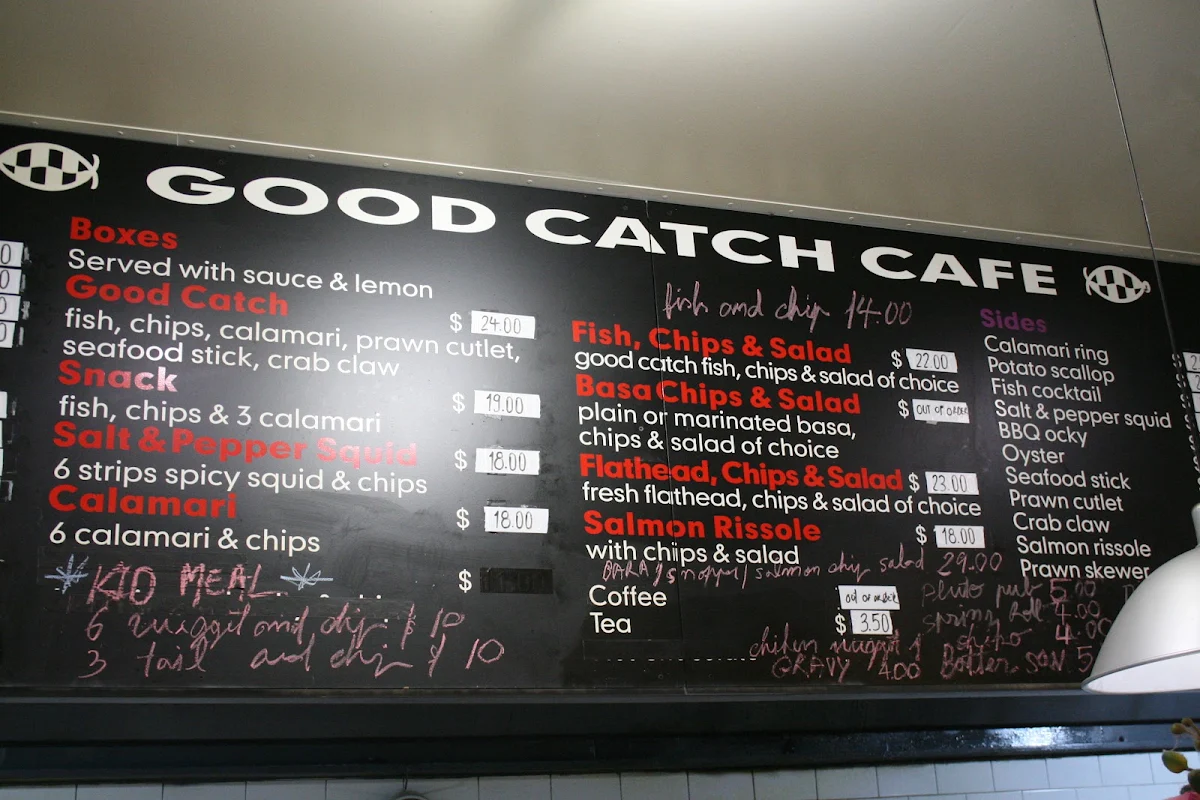 GOOD CATCH CAFE
Boxes
Served with sauce & lemon
Good Catch
$ 24.00
fish, chips, calamari, prawn cutlet,
seafood stick, crab claw
Snack
$ 19.00
fish, chips & 3 calamari
Salt & Pepper Squid
$ 18.00
6 strips spicy squid & chips
Calamari
$ 18.00
6 calamari & chips
KID MEAL
$
6 nuggit and chip $ 10
3 tail and chip $ 10
fish and chip 14.00
Fish, Chips & Salad
$ 22.00
good catch fish, chips & salad of choice
Basa Chips & Salad
$ OUT OF ORDER
plain or marinated basa,
chips & salad of choice
Flathead, Chips & Salad $ 23.00
fresh flathead, chips & salad of choice
Salmon Rissole
$ 18.00
with chips & salad
salmon chip salad 29.00
Coffee
OUT OF ORDER
Tea
$ 3.50
chicken nuggit 1
GRAVY 4.00
Sides
Calamari ring
Potato scallop
Fish cocktail
Salt & pepper squid
BBQ ocky
Oyster
Seafood stick
Prawn cutlet
Crab claw
Salmon rissole
Prawn skewer
pluto pub 5.00
spring roll 4.00
4.00
5